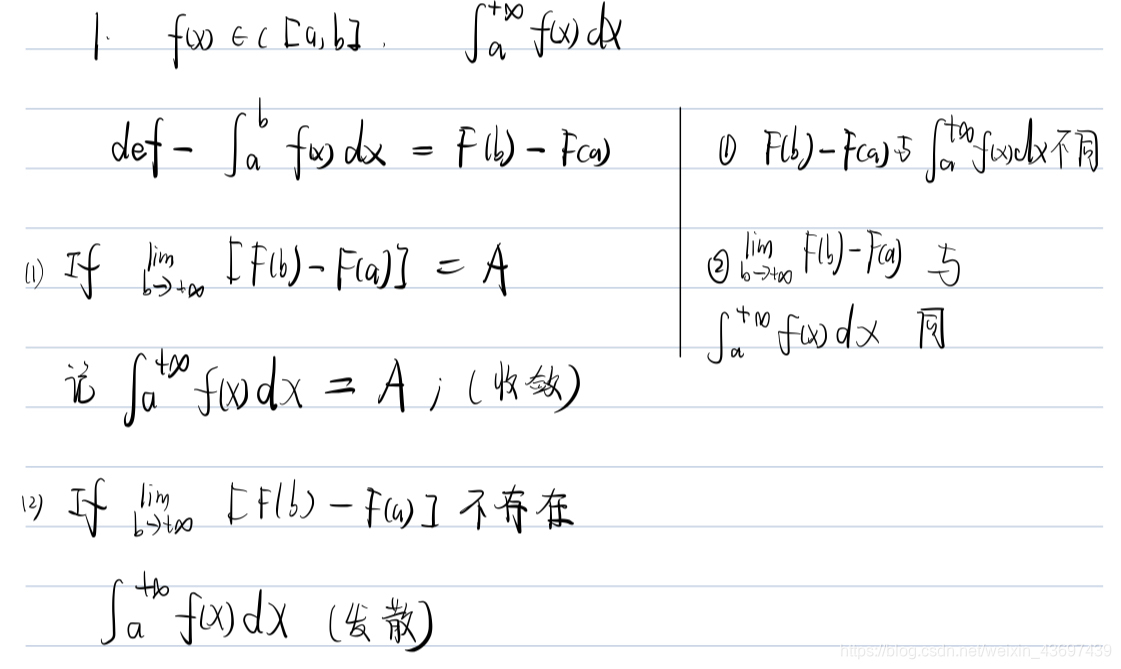 1. f(x) ∈ C [a,b]. ∫_a^{+∞} f(x)dx
def - ∫_a^b f(x)dx = F(b) - F(a)
(1) If lim_{b→+∞} [F(b) - F(a)] = A
记 ∫_a^{+∞} f(x)dx = A ; (收敛)
(2) If lim_{b→+∞} [F(b) - F(a)] 不存在
∫_a^{+∞} f(x)dx (发散)
① F(b)-F(a)与 ∫_a^{+∞} f(x)dx不同
② lim_{b→+∞} F(b)-F(a) 与
∫_a^{+∞} f(x)dx 同
https://blog.csdn.net/weixin_43697439